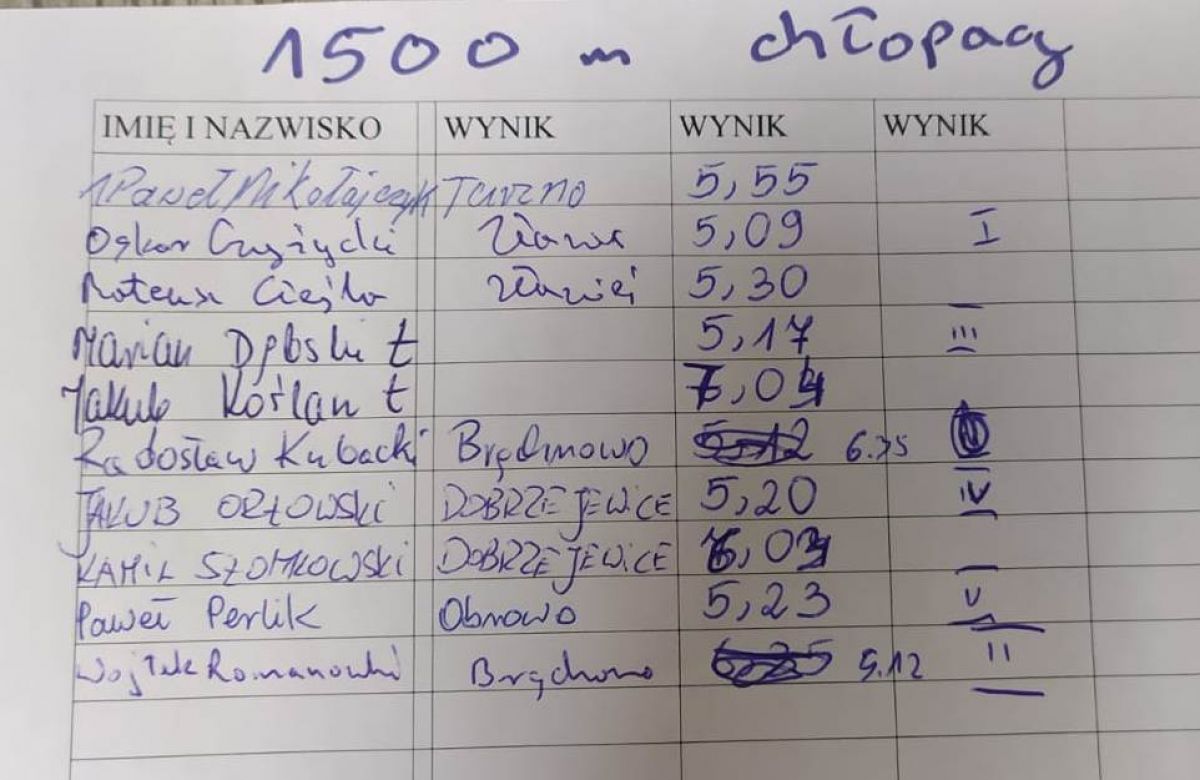 1500 m chłopacy
IMIĘ I NAZWISKO WYNIK WYNIK WYNIK
1 Paweł Mikołajczyk Turzno 5,55
Oskar Czyżycki 5,09 I
Mateusz Ciejka 5,30
Marian Dębski t 5,17 III
Jakub Koślan t
Radosław Kubacki 5,12 6.35
JAKUB ORŁOWSKI DOBRZEJEWICE 5,20 IV
KAMIL SŁOMKOWSKI DOBRZEJEWICE
Paweł Perlik Obrowo 5,23 V
Wojtek Romanowski 6,25 5.12 II